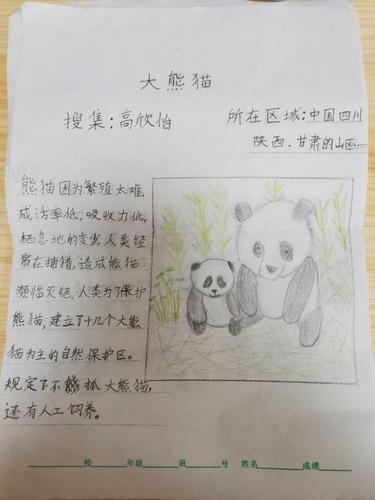 大熊猫
搜集:高欣怡
所在区域:中国四川
陕西、甘肃的山区……
熊猫因为繁殖太难,
成活率低,吸收力低,
栖息地的变劣人类经
常在捕猎,造成熊猫
频临灭绝,人类为了保护
熊猫,建立了十几个大熊
猫为主的自然保护区。
规定了不能抓大熊猫,
还有人工饲养。
校 年级 班 号 姓名 成绩